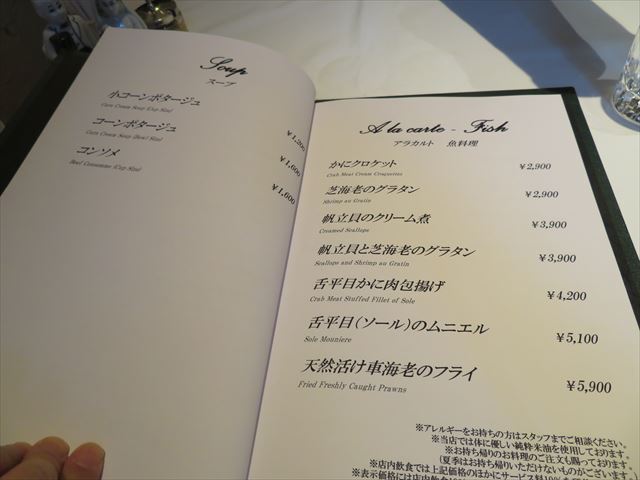 Soup
スープ
小コーンポタージュ
Corn Cream Soup (Cup Size)
¥1,200
コーンポタージュ
Corn Cream Soup (Bowl Size)
¥1,600
コンソメ
Beef Consomme (Cup Size)
¥1,600
A la carte - Fish
アラカルト 魚料理
かにクロケット ¥2,900
Crab Meat Cream Croquettes
芝海老のグラタン ¥2,900
Shrimp au Gratin
帆立貝のクリーム煮 ¥3,900
Creamed Scallops
帆立貝と芝海老のグラタン ¥3,900
Scallops and Shrimp au Gratin
舌平目かに肉包揚げ ¥4,200
Crab Meat Stuffed Fillet of Sole
舌平目(ソール)のムニエル ¥5,100
Sole Mouniere
天然活け車海老のフライ ¥5,900
Fried Freshly Caught Prawns
※アレルギーをお持ちの方はスタッフまでご相談ください。
※当店では体に優しい純粋米油を使用しております。
※お持ち帰りのお料理のご注文も賜っております。
(夏季はお持ち帰りいただけないものがございます。)
※店内飲食では上記価格のほかにサービス料10%を
※表示価格には店内飲食